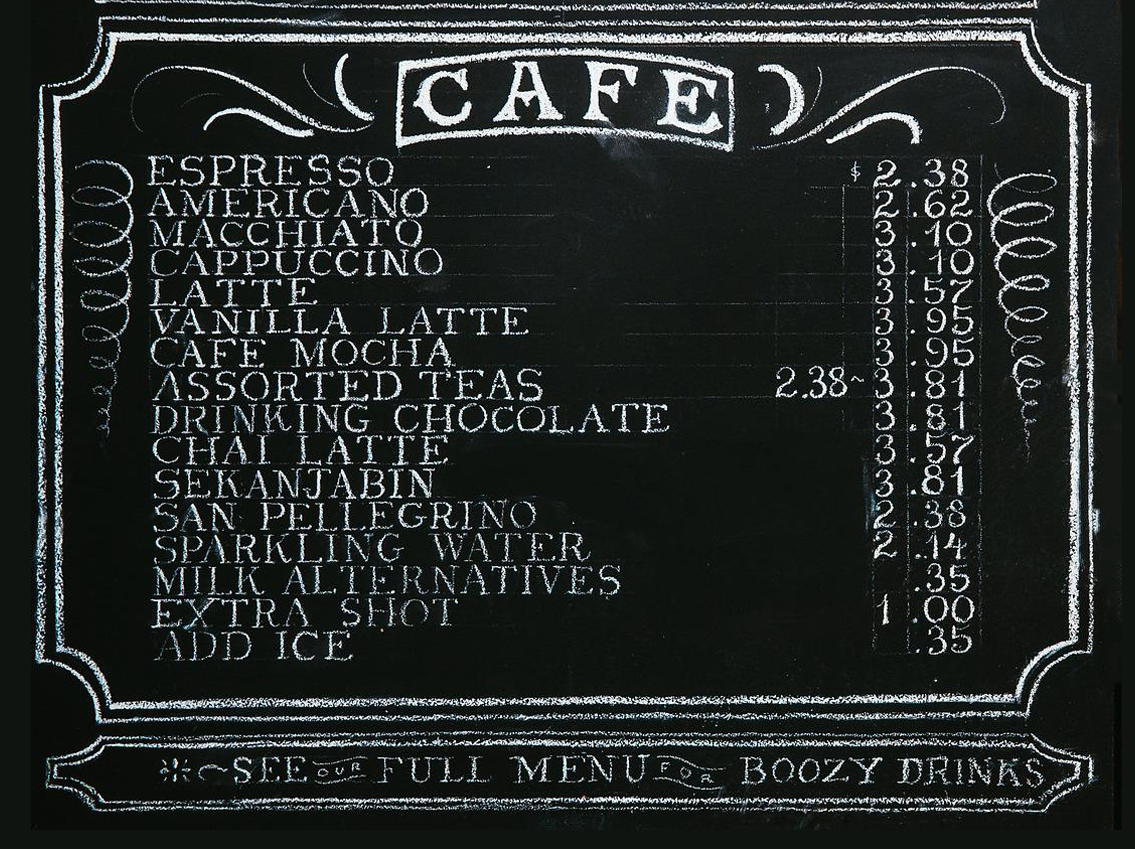 CAFE
ESPRESSO $ 2.38
AMERICANO 2.62
MACCHIATO 3.10
CAPPUCCINO 3.10
LATTE 3.57
VANILLA LATTE 3.95
CAFE MOCHA 3.95
ASSORTED TEAS 2.38~3.81
DRINKING CHOCOLATE 3.81
CHAI LATTE 3.57
SEKANJABIN 3.81
SAN PELLEGRINO 2.38
SPARKLING WATER 2.14
MILK ALTERNATIVES .35
EXTRA SHOT 1.00
ADD ICE .35
SEE OUR FULL MENU FOR BOOZY DRINKS